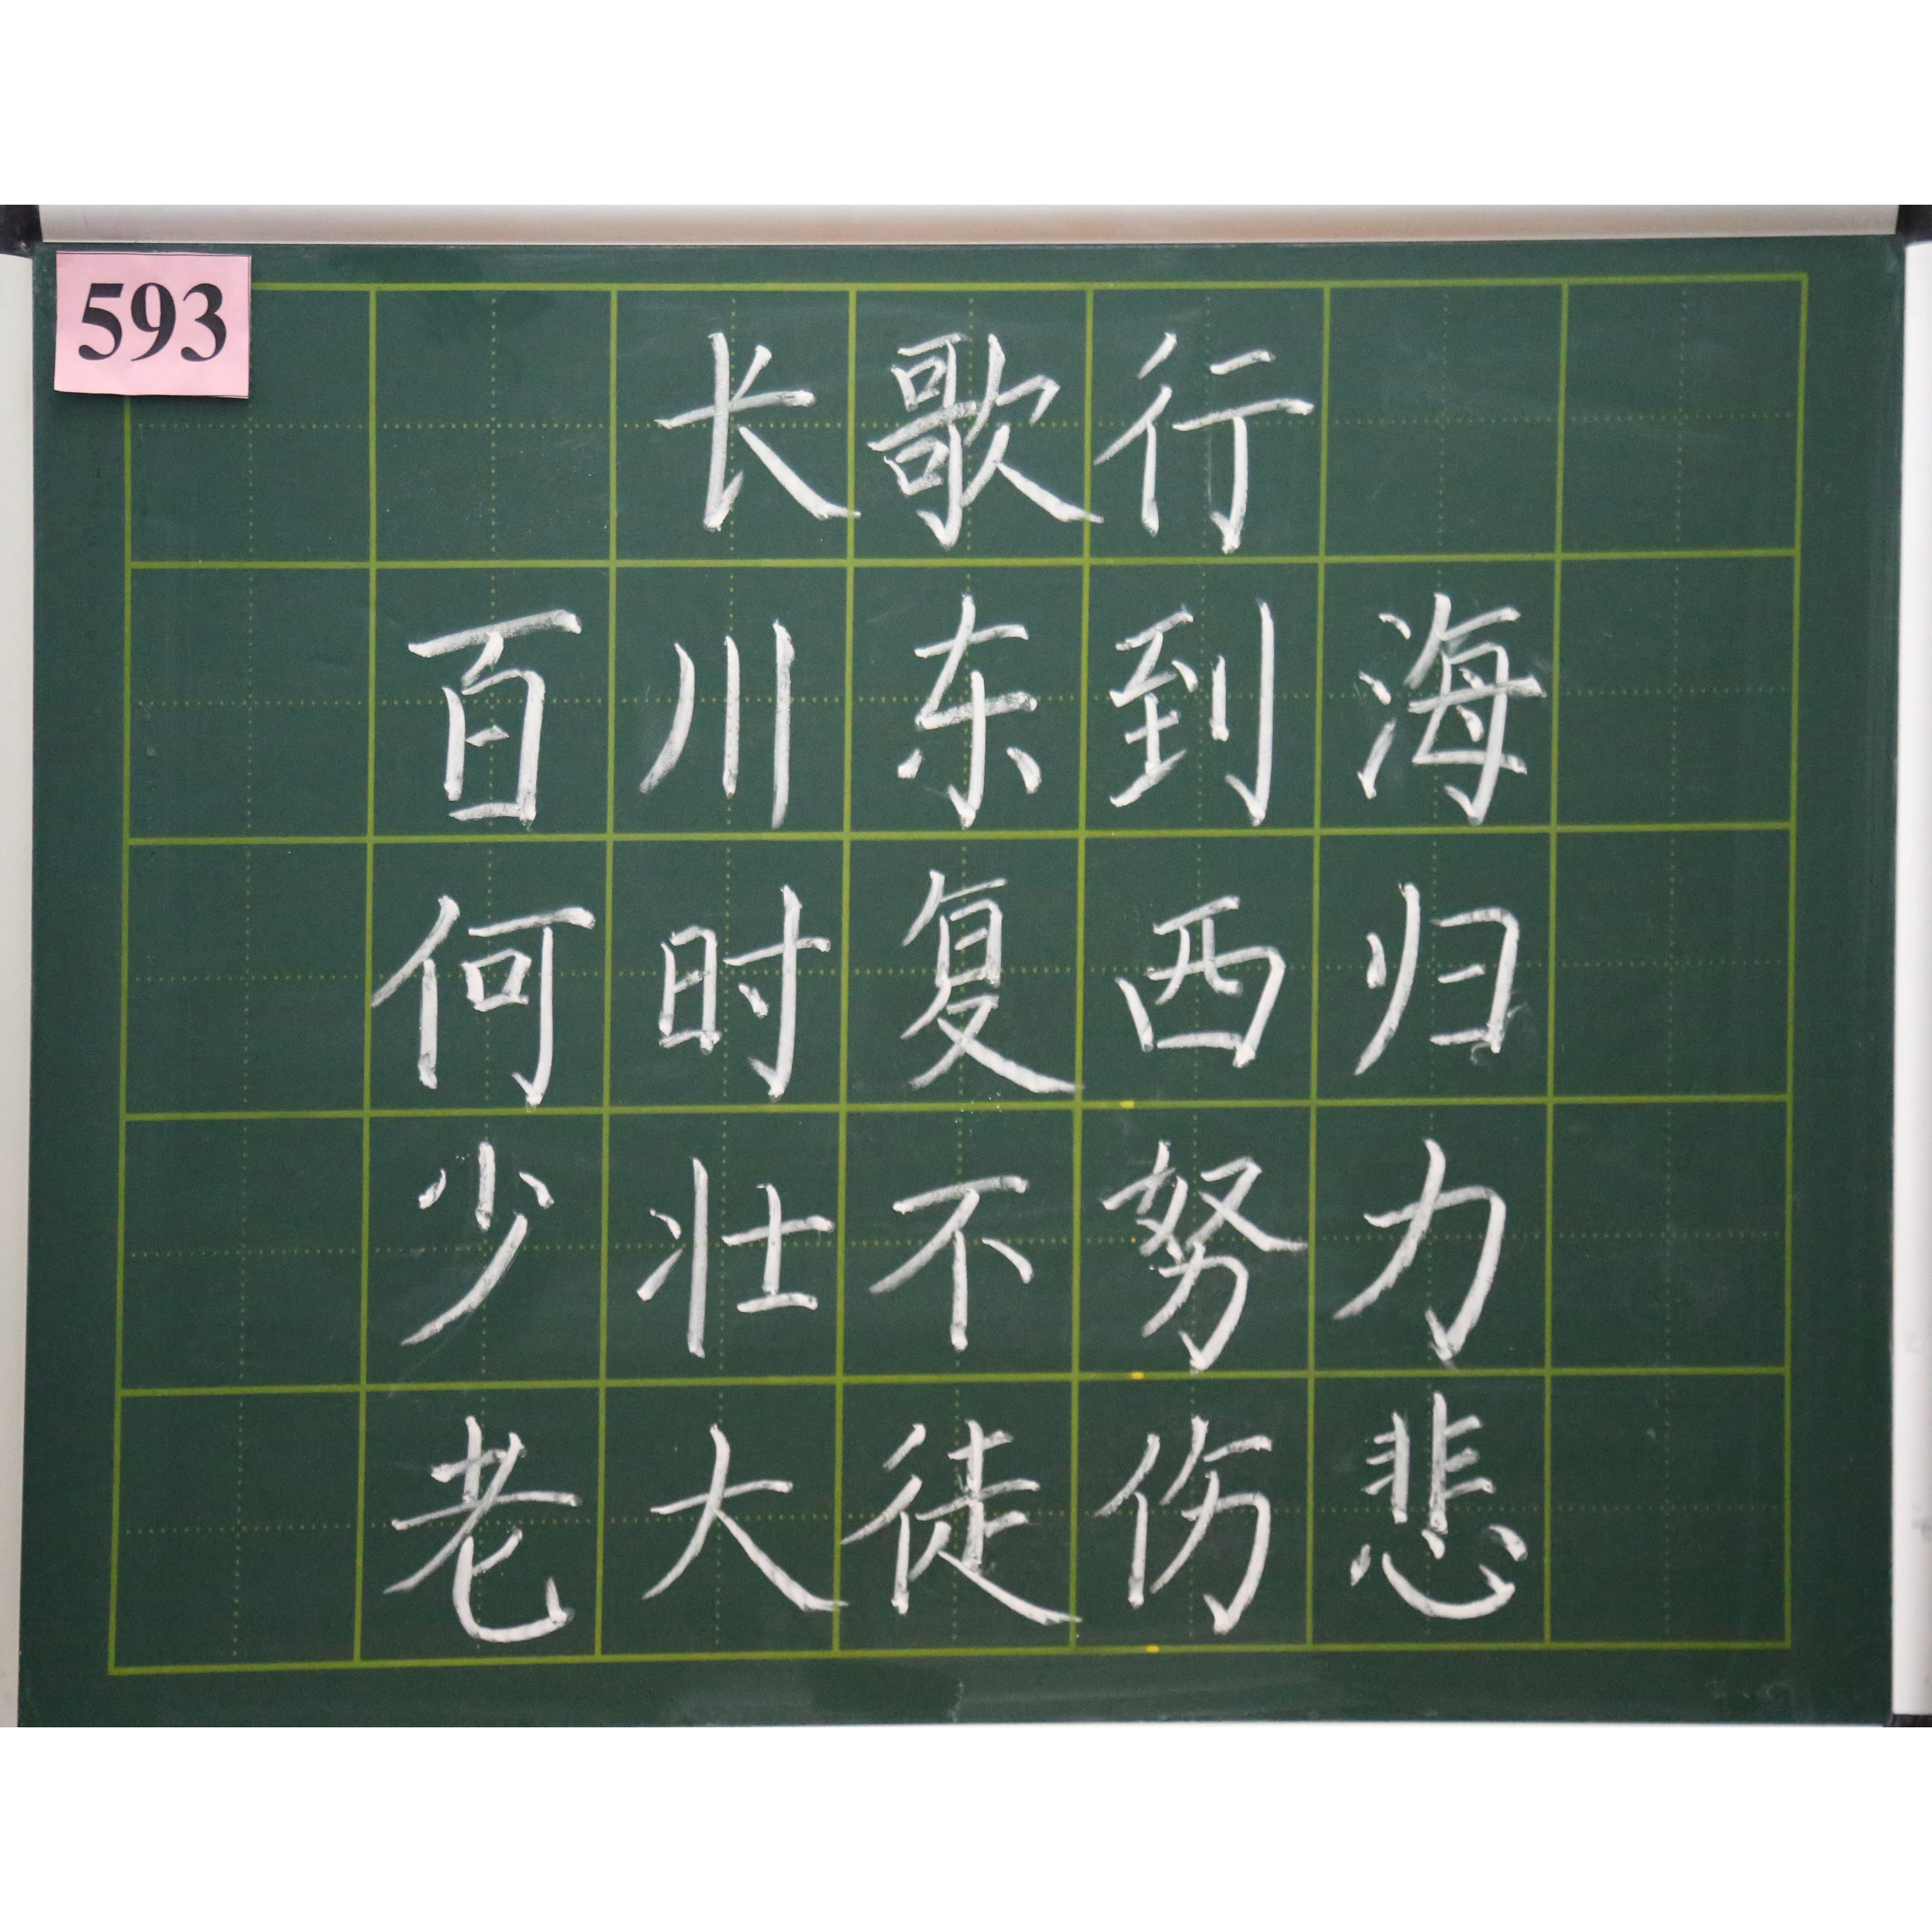 593
长歌行
百川东到海
何时复西归
少壮不努力
老大徒伤悲